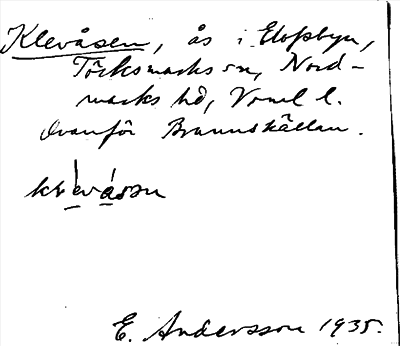 Klevåsen, ås i Elofsbyn,
Töcksmarks sn, Nord-
marks hd, Vrml l.
Ovanför Brunnskällan.
E. Andersson 1935.